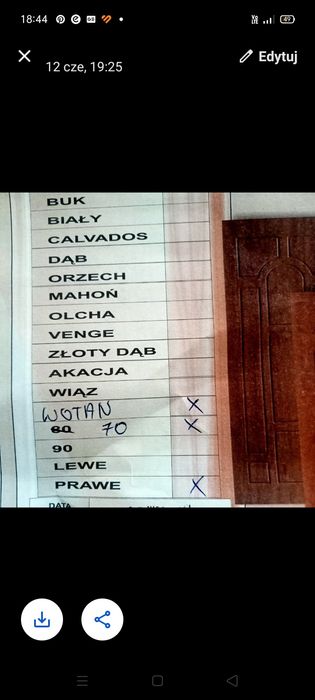 18:44
49
12 cze, 19:25
Edytuj
BUK
BIAŁY
CALVADOS
DĄB
ORZECH
MAHOŃ
OLCHA
VENGE
ZŁOTY DĄB
AKACJA
WIĄZ
WOTAN X
80 70 X
90
LEWE
PRAWE X
DATA